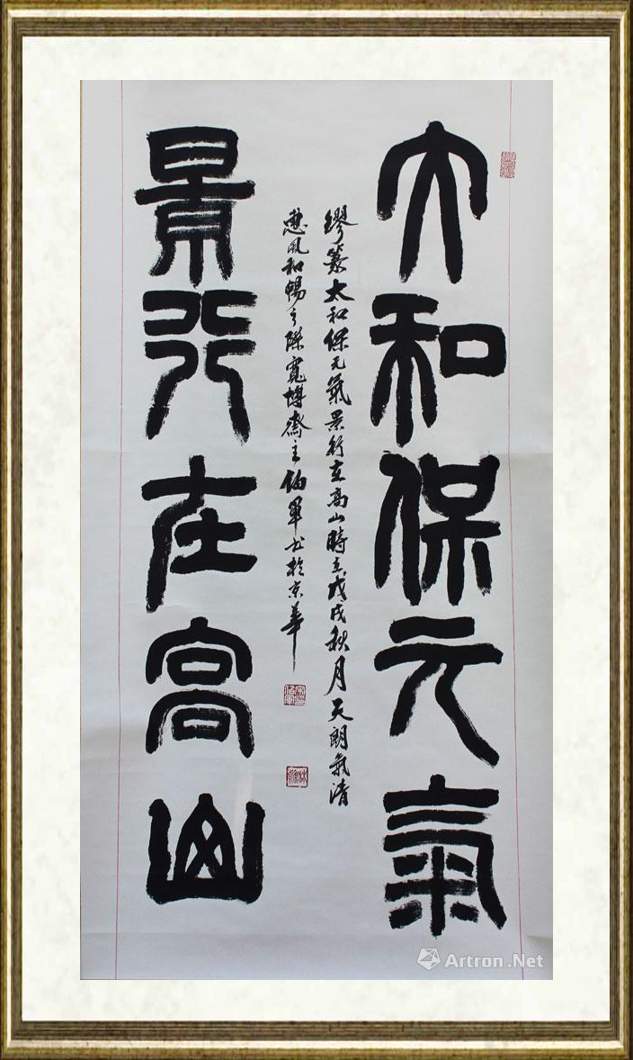 大和保元氣
景行在高山
缪篆太和保元氣景行在高山時在戊戌秋月天朗氣清
惠风和暢之際寬博齋主伯軍书於京華
Artron.Net